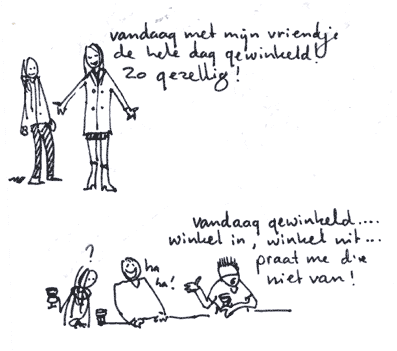 vandaag met mijn vriendje
de hele dag gewinkeld!
zo gezellig!
?
ha
ha!
vandaag gewinkeld....
winkel in, winkel uit...
praat me d'r
niet van!